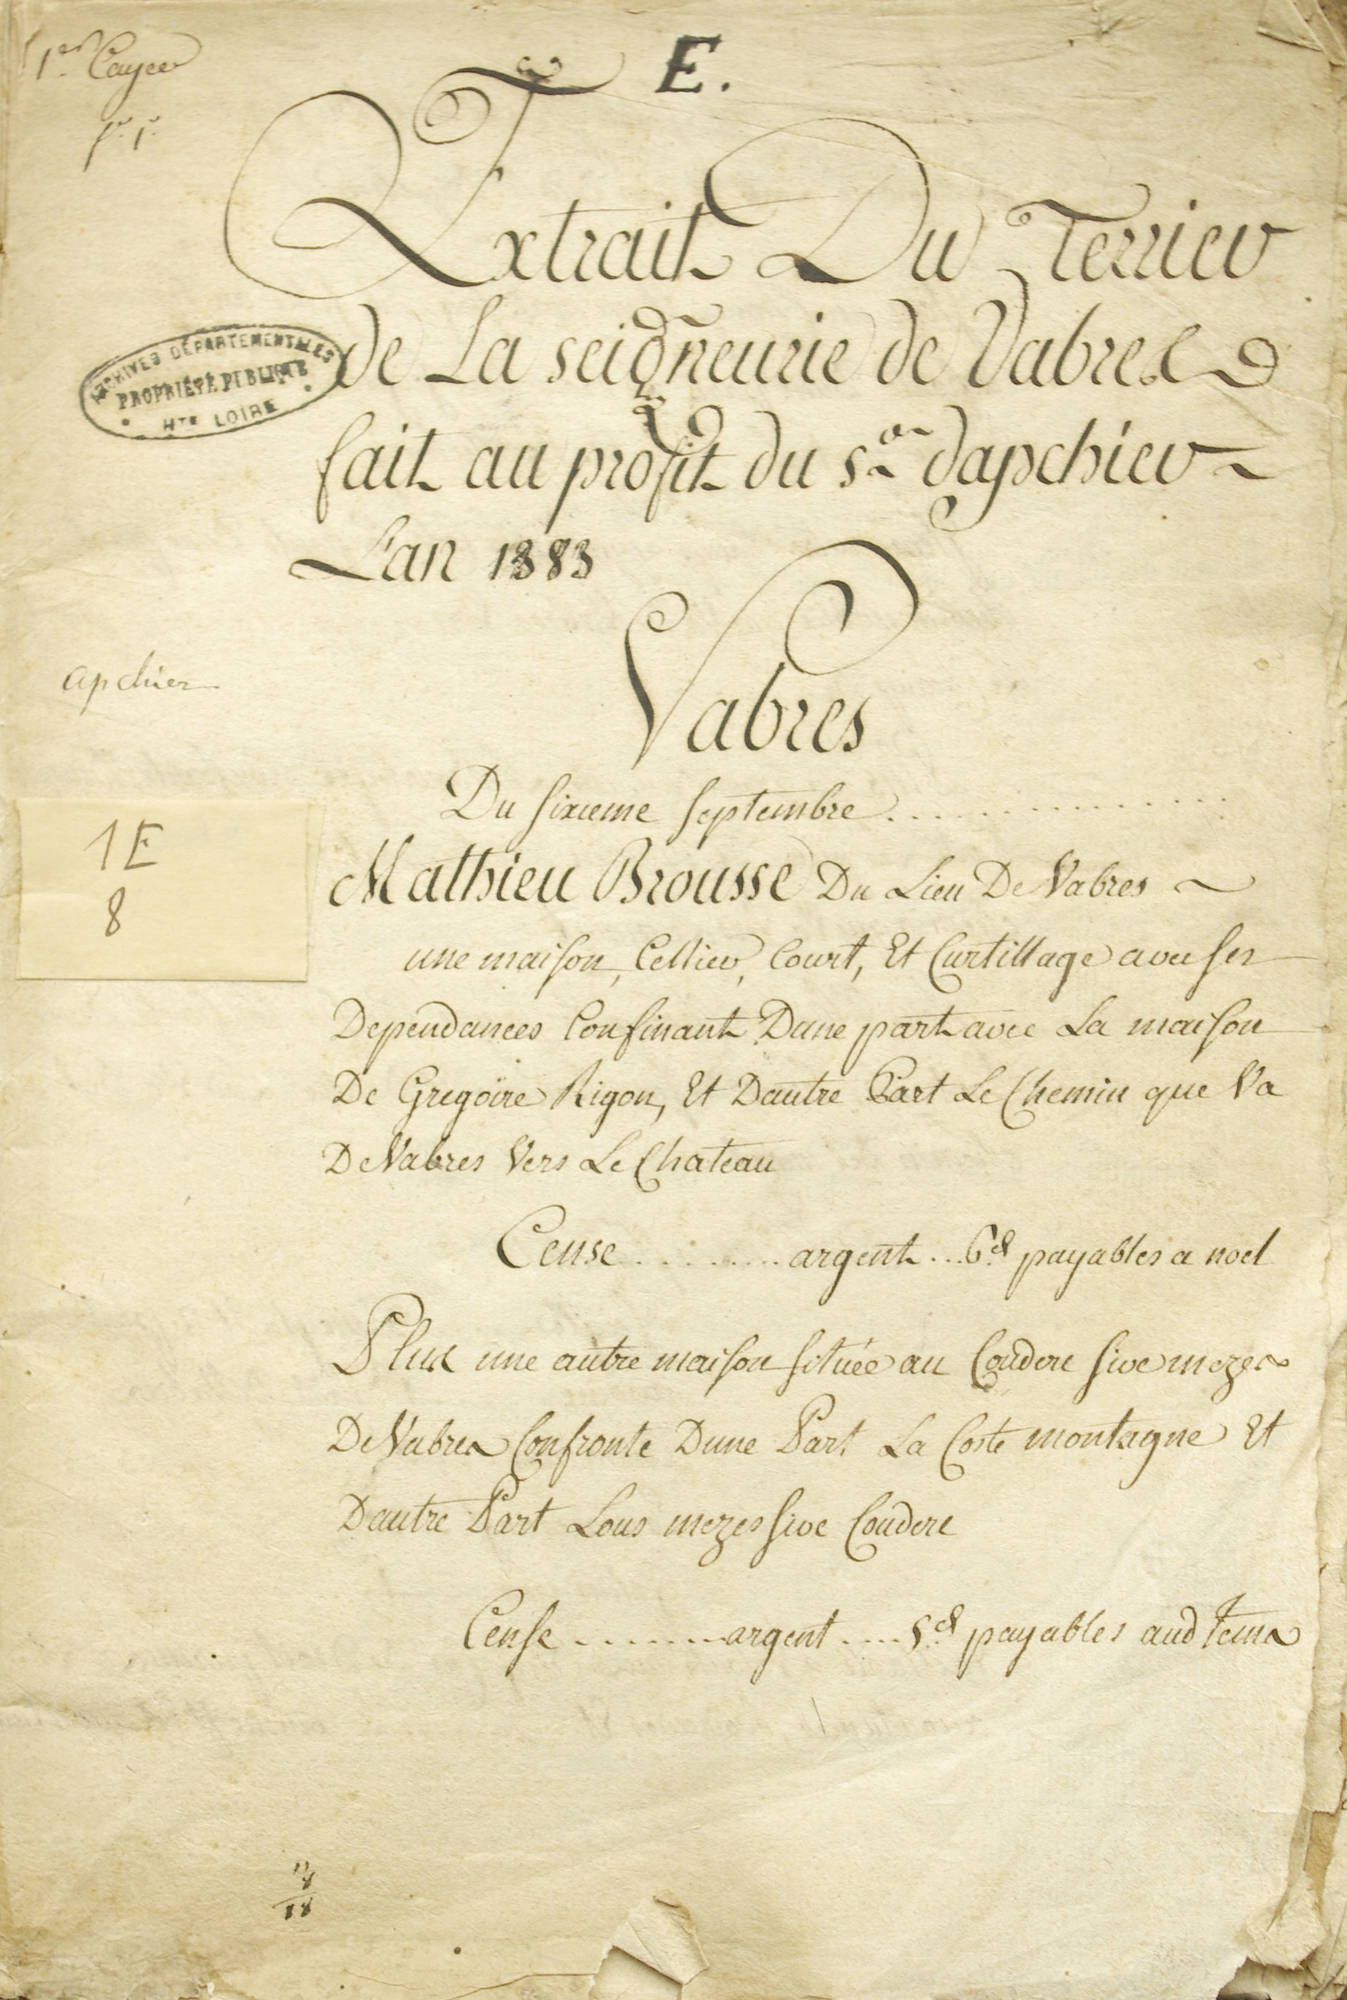 1er Cayer
E.
fo. 1o.
Extrait Du Terrier
de La seigneurie de Vabres
ARCHIVES DÉPARTEMENTALES
PROPRIÉTÉ PUBLIQUE
HTE LOIRE
fait au profit du Sr dapchier
L'an 1383
apchier
Vabres
Du sixieme septembre
1E
8
Mathieu Brousse Du Lieu De Vabres
une maison, Cellier, Court, Et Curtillage avec ses
Dependances Confinant Dune part avec La maison
De Gregoire Rigon, Et Dautre Part Le Chemin que Va
De Vabres Vers Le Chateau
Cense ......... argent ... 6d payables a noel
Plus une autre maison située au Couderc sive mezes
De Vabres Confronte Dune Part La Coste montagne Et
Dautre Part Lous mezes sive Couderc
Cense ......... argent .... 5d payables aud tems